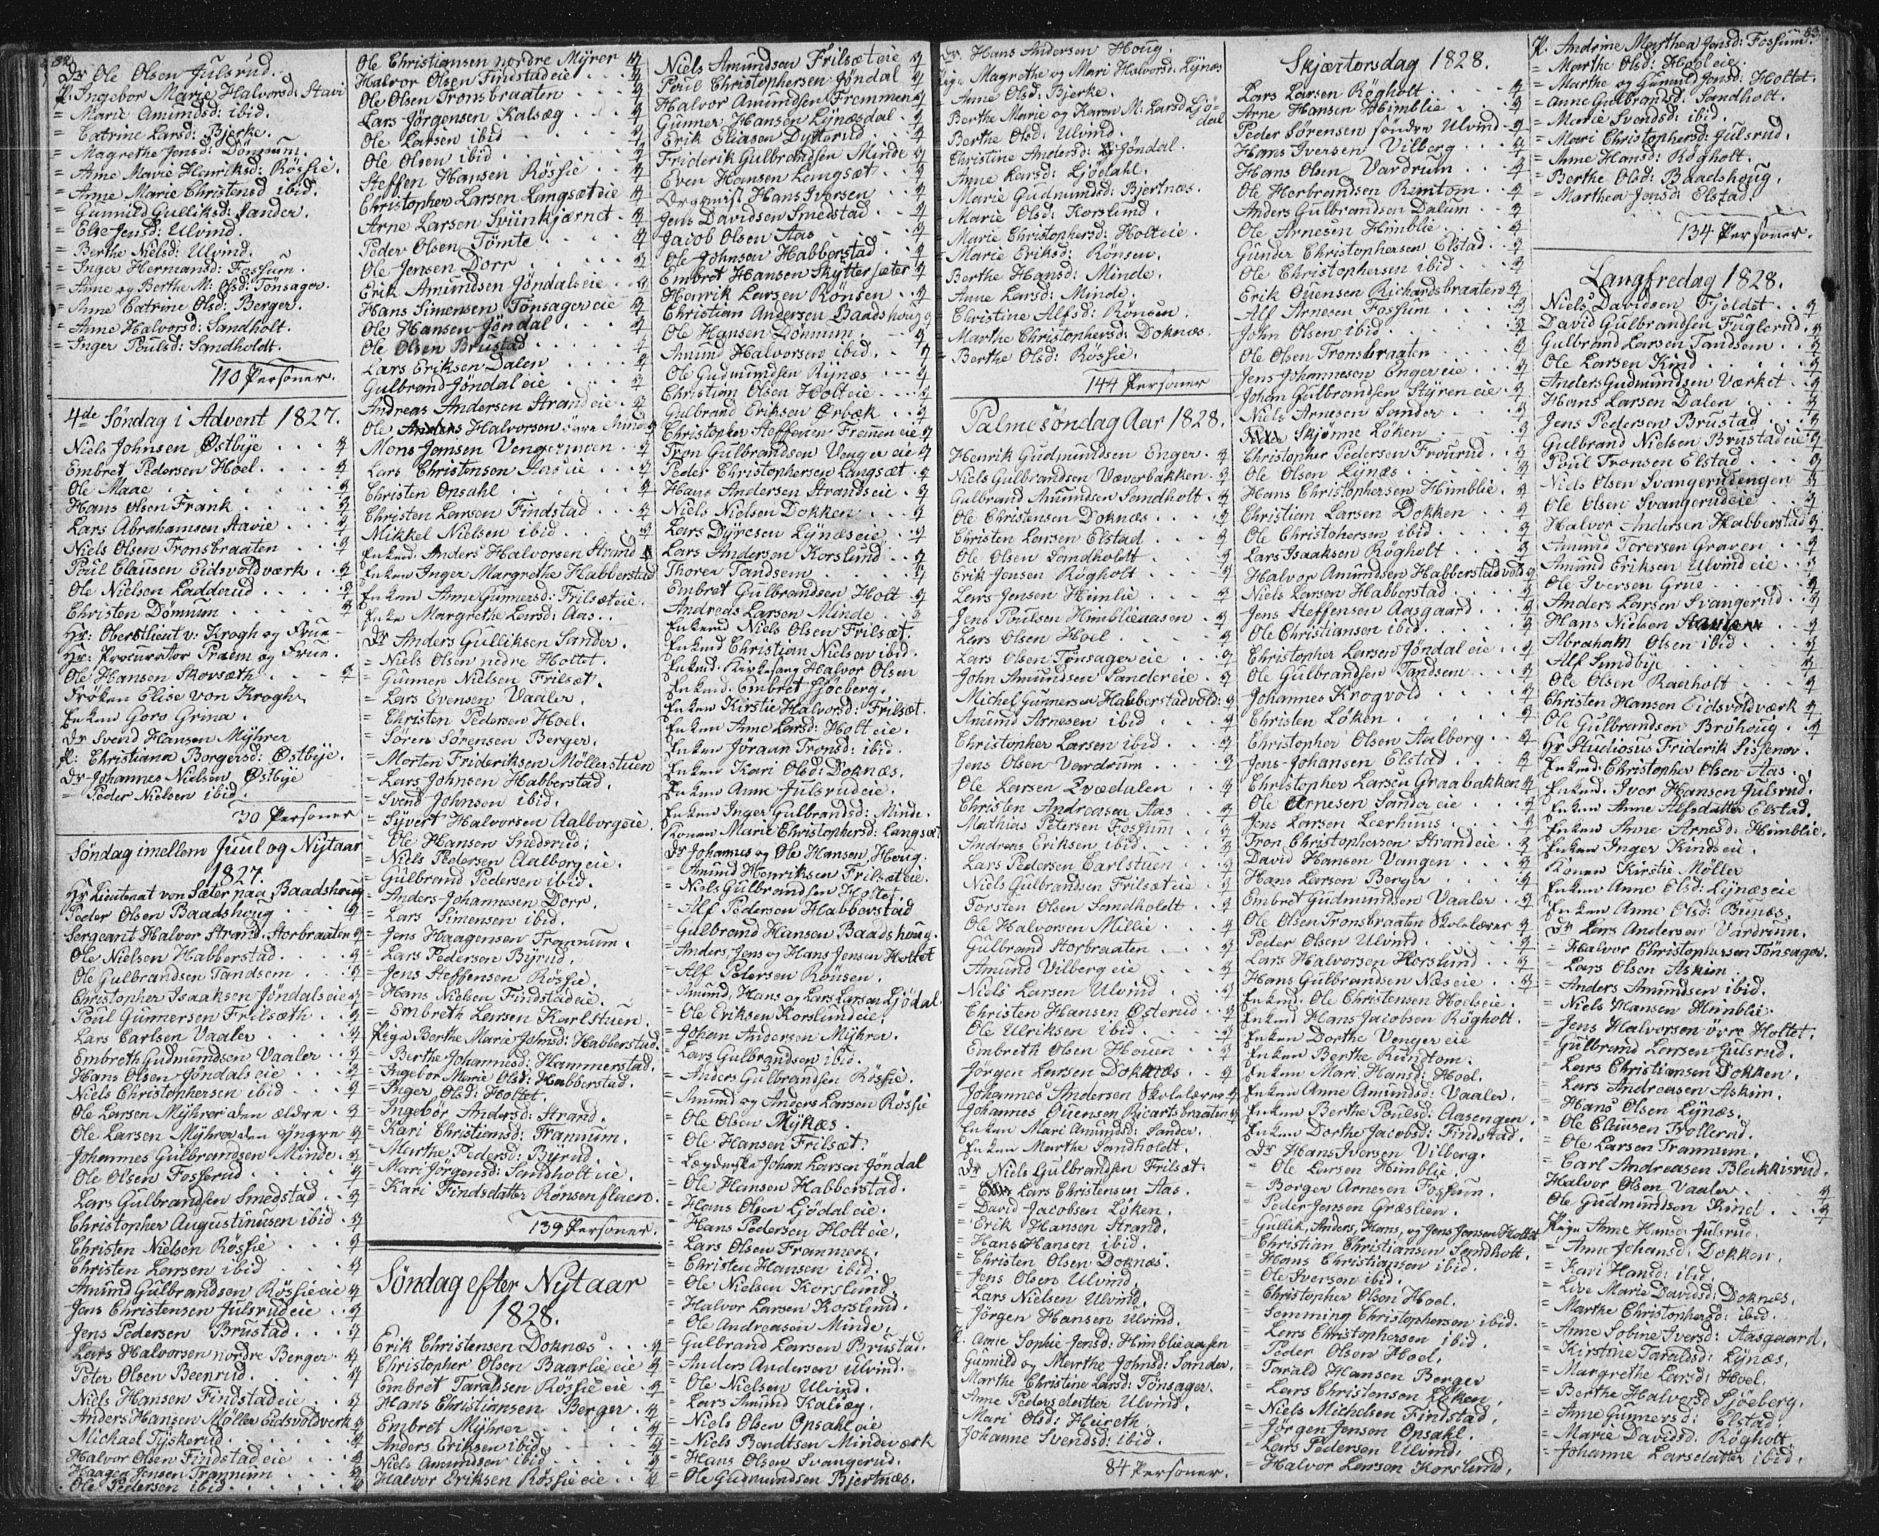 82.
Dr Ole Olsen Julsrud.
P. Ingebor Marie Halvorsd: Stavi
= Marie Amundsd: ibid.
= Catrine Larsd: Bjerke.
= Magrethe Jensd: Dönnum.
= Anne Marie Henriksd: Röisie.
= Anne Marie Christensd ibid.
= Gunnild Gulliksd: Sander.
= Else Jensd: Ulvind.
= Berthe Nielsd: Ulvind.
= Inger Hermansd: Fossum.
= Anne og Berthe M. Olsd: Tönsager.
= Anne Catrine Olsd: Berger.
= Anne Halvorsd: Sandholt.
= Inger Poulsd: Sandholdt.
110 Personer.
4de Söndag i Advent 1827.
Niels Johnsen Østbye
Embret Pedersen Hoel
Ole Maae
Hans Olsen Frank
Lars Abrahamsen Stavie
Niels Olsen Tronsbraaten
Poul Clausen Eidsvoldværk
Ole Nielsen Ladderud
Christen Dönnum
Hr: Oberstlieut v: Krogh og Frue
Hr: Procurator Praem og Frue
Ole Hansen Skovsæth
Fröken Elise von Krogh
Enken Goro Grina.
Dr Svend Hansen Mÿhrer
P: Christiana Borgersd: Østbÿe.
Dr Johannes Nielsen Østbÿe
= Peder Nielsen ibid.
30 Personer
Söndag imellem Juul og Nytaar
1827.
Hr Lieutenat von Sæter paa Baadshoug
Peder Olsen Baadshoug
Sergeant Halvor Strand Storbraaten
Ole Nielsen Habberstad
Ole Gulbrandsen Tandsem
Christopher Isaaksen Jöndalseie
Poul Gunnersen Frilsæth
Lars Carlsen Vaaler
Embreth Gudmundsen Vaaler
Hans Olsen Jöndalseie
Niels Christophersen ibid
Ole Larsen Mÿhrer den ældre
Ole Larsen Mÿhrer den yngre
Johannes Gulbrandsen Minde
Ole Olsen Fosserud
Lars Gulbrandsen Smedstad
Christopher Augustinusen ibid
Christen Nielsen Rössie
Christen Larsen ibid
Amund Gulbrandsen Rössieeie
Jens Christensen Julsrudeie
Jens Pedersen Brustad
Lars Halvorsen nordre Berger
Peter Olsen Beenrud
Niels Hansen Findstadeie
Anders Hansen Möller Eidsvoldverk
Michael Tÿskerud
Halvor Olsen Findstadeie
Haagen Jensen Trannum
Ole Pedersen ibid
Ole Christiansen nordre Mÿrer
Halvor Olsen Findstadeie
Ole Olsen Tronsbraaten
Lars Jörgensen Kalsæg
Ole Larsen ibid
Ole Olsen ibid
Steffen Hansen Rössie
Christopher Larsen Langsæteie
Arne Larsen Sviinkjærnet
Peder Olsen Tömte
Ole Jensen Dorr
Erik Amundsen Jöndalseie
Hans Simensen Tönsagereie
Ole Hansen Jöndal
Ole Olsen Brustad
Lars Eriksen Dalen
Gulbrand Jöndaleie
Andreas Andersen Strandeie
Ole Halvorsen
Mons Jensen Vengermoen
Lars Christenson
Christen Opsahl
Christen Larsen Findstad
Mikkel Nielsen ibid
Enkmd: Anders Halvorsen Strand
Enken Inger Margrethe Habberstad
Enken Anne Gunnersd: Frilsæteie
Enken Margrethe Larsd: Aas.
Dr Anders Gulliksen Sander.
= Niels Olsen nedre Holtet.
= Gunner Nielsen Frilsæt.
= Lars Evensen Vaaler.
= Christen Pedersen Hoel.
= Sören Sörensen Berger.
= Morten Frideriksen Möllerstuen
= Lars Johnsen Habberstad.
= Svend Johnsen ibid.
= Sÿvert Halvorsen Aalborgeie.
= Ole Hansen Snedsrud.
= Niels Pedersen Aalborgeie.
= Gulbrand Pedersen ibid.
= Anders Johannesen Dorr.
= Lars Simensen ibid.
= Jens Haagensen Trannum.
= Lars Pedersen Bÿrud.
= Jens Steffensen Rössie.
= Hans Nielsen Findstadeie.
= Embreth Larsen Karlstuen.
Pige Berthe Marie Johnsd: Habberstad.
= Berthe Johannesd: Hammerstad.
= Ingebor Marie Olsd: Habberstad.
= Inger Olsd: Holtet.
= Ingebör Andersd: Strand.
= Kari Christiansd: Trannum.
= Marthe Pedersd: Bÿrud
= Mari Jörgensd: Sandholteie.
= Kari Findsdatter Rönsenflaen.
139 Personer.
Söndag efter Nÿtaar
1828.
Erik Christensen Doknæs
Christopher Olsen Baarlieeie
Embret Taraldsen Rössieeie
Hans Christiansen Berger
Embret Mÿhrer
Anders Eriksen ibid
Niels Amundsen ibid
Halvor Eriksen Rössieeie
Niels Amundsen Frilsæteie
Poul Christophersen Jöndal
Halvor Amundsen Fremmen
Gunner Hansen Lÿnæsdal
Erik Eliasen Dÿtterud
Friderik Gulbrandsen Minde
Even Hansen Langsæt
Hans Iversen
Jens Davidsen Smedstad
Jacob Olsen Aas
Ole Johnsen Habberstad
Embret Hansen Skÿttersæter
Henrik Larsen Rönsen
Christian Andersen Baadshoug
Ole Hansen Dönnum
Amund Halvorsen ibid.
Ole Gudmundsen Rÿnæs
Christian Olsen Holteie
Gulbrand Eriksen Ørbæk
Christopher Steffensen Fremeneie
Tron Gulbrandsen Vengereie
Peder Christophersen Langsæt
Hans Andersen Strandseie
Niels Nielsen Dokken
Lars Dÿresen Lÿnæseie
Lars Andersen Korslund
Thorer Tandsem
Embret Gulbrandsen Holt
Andreas Larsen Minde
Enkemd Niels Olsen Frilsæt.
Enkmd Christian Nielsen ibid.
Enkmd. Kirkesang Halvor Olsen
Enkmd. Embret Sjöeberg.
Enken Kirstie Halvorsd: Frilsæt.
Enken Anne Larsd: Holteie.
Enken Jöraan Tronsd: ibid.
Enken Kari Olsd: Doknæs.
Enken Anne Julsrudeie.
Enken Inger Gulbrandsd: Minde.
Konen Marie Christophersd: Langsæt
Dr Johannes og Ole Hansen Houg.
= Amund Henriksen Frilsæteie.
= Niels Gulbrandsen Holtet
= Alf Pedersen Habberstad
= Gulbrand Hansen Baadshoug.
= Anders, Jens og Hans Jensen Holtet
= Alf Pedersen Rönsen.
= Amund, Hans og Lars Larsen Ljödal
= Ole Eriksen Korslundeie
= Johan Andersen Mÿhrer
= Lars Gulbrandsen ibid.
= Anders Gulbrandsen Rössie.
= Amund og Anders Larsen Rössie
= Ole Olsen Mÿkæs.
= Ole Hansen Frilsæt.
= Johan Larsen Jöndal
= Ole Hansen Habberstad
= Hans Olsen Ljödaleie.
= Hans Pedersen Holteie.
= Lars Olsen Frammen.
= Christen Hansen ibid.
= Ole Nielsen Korslund.
= Halvor Larsen Korslund.
= Ole Andreasen Minde.
= Gulbrand Larsen Brustad.
= Anders Andersen Ulvind.
= Ole Nielsen Ulvind.
= Lars Amund Kalsæg.
= Niels Olsen Opsahleie
= Niels Bendtsen Mindeværk
= Hans Olsen Svangerud.
= Ole Gudmundsen Bjertnæs.
83.
Dr Hans Andersen Houg.
Pige Magrethe og Mari Halvorsd: Lÿnæs
Anne Olsd: Bjerke.
Berthe Marie og Karen M. Larsd Ljödal
Berthe Olsd: Ulvind.
Christine Andersd: Jöndal.
Anne Larsd: Ljödahl.
Marie Gudmundsd: Bjertnæs.
Marie Olsd: Korslund.
Marie Christophersd: Holteie.
Marie Eriksd: Rönsen.
Berthe Hansd: Minde.
Anne Larsd: Minde.
Christine Alfsd: Rönsen.
Marthe Christophersd: Doknæs.
= Berthe Olsd: Rössie.
144 Personer
Palmesöndag Aar 1828.
Henrik Gudmundsen Enger
Niels Gulbrandsen Væverbakken
Gulbrand Amundsen Sandholt
Ole Christensen Doknæs
Christen Larsen Elstad
Ole Olsen Sandholdt
Erik Jensen Rögholt
Lars Jensen Himlie
Jens Poulsen Himblieaasen
Lars Olsen Hoel
Lars Olsen Tönsagereie
John Amundsen Sandereie
Michel Gunnersen Habberstadvold
Amund Arnesen ibid
Christopher Larsen ibid
Jens Olsen Vardrum
Ole Larsen Qvædalen
Christen Andreasen Aas
Mathias Petersen Fossum
Andreas Eriksen ibid
Lars Pedersen Carlstuen
Niels Gulbrandsen Frilsæteie
Torsten Olsen Sandholdt
Ole Halvorsen Millie
Gulbrand Storbraaten
Amund Vilbergeie
Niels Larsen Ulvind
Christen Hansen Østerud
Ole Ulriksen ibid
Embreth Olsen Houen
Jörgen Larsen Doknæs
Johannes Andersen Skolelærer
Johannes Ouensen Ricartsbraaten
Enken Mari Amundsd: Sander.
Enken Marthe Sandholdt
Dr Niels Gulbrandsen Frilsæt.
= Lars Christensen Aas.
= David Jacobsen Löken.
= Erik Hansen Strand.
= Hans Hansen ibid.
= Christen Olsen Doknæs.
= Jens Olsen Ulvind.
= Lars Nielsen Ulvind
= Jörgen Hansen Ulvind.
P. Anne Sophie Jensd: Himblieaasen
Gunild og Marthe Johnsd: Sander.
Marthe Christine Larsd: Tönsager.
Anne Pedersdatter Ulvind.
Mari Olsd: Heireth.
Johanne Svendsd: ibid.
84 Personer.
Skjærtorsdag 1828.
Lars Larsen Rögholt
Arne Hansen Himblie
Peder Sörensen söndre Ulvind
Hans Iversen Vilberg
Hans Olsen Vardrum
Ole Herbrandsen Remtom
Anders Gulbrandsen Dalum
Ole Arnesen Himblie
Gunder Christophersen Elstad
Ole Christophersen ibid
Erik Ouensen Richardsbraaten
Alf Arnesen Fossum
John Olsen ibid
Ole Olsen Tronsbraaten
Jens Johannesen Engereie
Johan Gulbrandsen Stÿreneie
Niels Arnesen Sander
Skjönne Löken
Christopher Pedersen Frourud
Ole Olsen Lÿnæs
Hans Christophersen Himblie
Christian Larsen Dokken
Ole Christohersen ibid
Lars Isaaksen Rögholt
Halvor Amundsen Habberstadvold
Niels Larsen Habberstad
Jens Steffensen Aasgaard
Ole Christiansen ibid
Christopher Larsen Jöndaleie
Ole Gulbrandsen Tandsem
Johannes Krogvold
Christen Löken
Christopher Olsen Aalborg
Jens Johansen Elstad
Christopher Larsen Graabakken
Ole Arnesen Sandereie
Jens Larsen Leerhuus
Tron Christophersen Strandeie
David Hansen Vangen
Hans Larsen Berger
Embret Gudmundsen Vaaler
Ole Olsen Tronsbraaten Skolelærer
Peder Olsen Ulvind
Lars Halvorsen Horslund
Hans Gulbrandsen Næseie
Enkmd: Ole Christensen Hoelseie
Enkmd Hans Jacobsen Rögholt.
Enken Dorthe Vengereie
Enken Berthe Rundtom.
Enken Mari Hansd: Hoel.
Enken Anne Amundsd: Vaaler.
Enken Berthe Poulsd: Aasengen.
Enken Dorthe Jacobsd: Findstad.
Dr Hans Iversen Vilberg.
= Ole Larsen Himblie.
= Borger Arnesen Fossum.
= Peder Jensen Græslien.
= Gullik, Anders, Hans, og Jens Jensen Holtet
= Christian Christiansen Sandholt.
= Hans Christiansen ibid.
= Ole Iversen ibid.
= Christopher Olsen Hoel.
= Semming Christophersen ibid.
= Lars Christophersen ibid.
= Peder Olsen Hoel.
= Tarald Hansen Berger
= Lars Christensen Löken.
= Niels Michelsen Findstad.
= Jörgen Jensen Opsahl.
= Lars Pedersen Ulvind.
= Halvor Larsen Korslund.
P. Andrine Marthea Jensd: Fossum.
= Marthe Olsd: Hoeleie.
= Marthe og Gunild Jensd: Holtet.
= Anne Gulbrandsd: Sandholt.
= Marie Svendsd: ibid.
= Mari Christophersd: Julsrud.
= Anne Hansd: Rögholt.
= Berthe Olsd: Baadshoug.
= Marthea Jensd: Elstad.
134 Personer.
Langfredag 1828.
Niels Davidsen Fjeldst
David Gulbrandsen Fuglerud
Gulbrand Larsen Tandsem
Ole Larsen Kind
Anders Gudmundsen Værket
Hans Larsen Dalen
Jens Pedersen Brustad
Gulbrand Nielsen Brustadeie
Poul Tronsen Elstad
Niels Olsen Svangerudengen
Ole Olsen Svangerudeie
Halvor Andersen Habberstad
Amund Torersen Graven
Amund Eriksen Ulvindeie
Ole Iversen Grue
Anders Larsen Svangerud
Hans Nielsen
Abraham Olsen ibid
Alf Sundbÿe
Ole Olsen Raaholt
Christen Hansen Eidsvoldværk
Ole Gulbrandsen Bröhoug
Hr Studiosus Friderik Sissener.
Enkmd: Christopher Olsen Aas.
Enkmd. Iver Hansen Julsrud.
Enken Anne Alfsdatter Elstad.
Enken Anne Arnesd: Himblie.
Enken Inger Kindeie.
Konen Kirstie Möller
Enken Anne Olsd: Lÿnæseie
Enken Anne Olsd: Bunæs.
Dr Lars Andersen Vardrum.
= Halvor Christophersen Tönsager.
= Lars Olsen Askim.
= Anders Amundsen ibid.
= Niels Hansen Himblie
= Jens Halvorsen övre Holtet.
= Gulbrand Larsen Gulsrud.
= Lars Christiansen Dokken.
= Lars Andreasen Askim.
= Hans Olsen Lÿnæs.
= Ole Clausen Bollerud.
= Ole Larsen Trannum.
= Carl Andreasen Blekkisrud.
Halvor Olsen Vaaler
Ole Gudmundsen Kind
Pige Anne Hansd Julsrud.
= Anne Johansd: Dokken.
= Kari Hansd: ibid.
= Live Marie Davidsd: Doknæs.
= Marthe Christophersd: ibid.
= Anne Sobine Iversd: Aasgaard.
= Kirstine Taraldsd: Lÿnæs.
= Margrethe Larsd: Hoel.
= Berthe Halvorsd Sjöeberg.
= Anne Gunnersd: Elstad.
= Marie Davidsd: Rögholt.
= Johanne Larsdatter ibid.